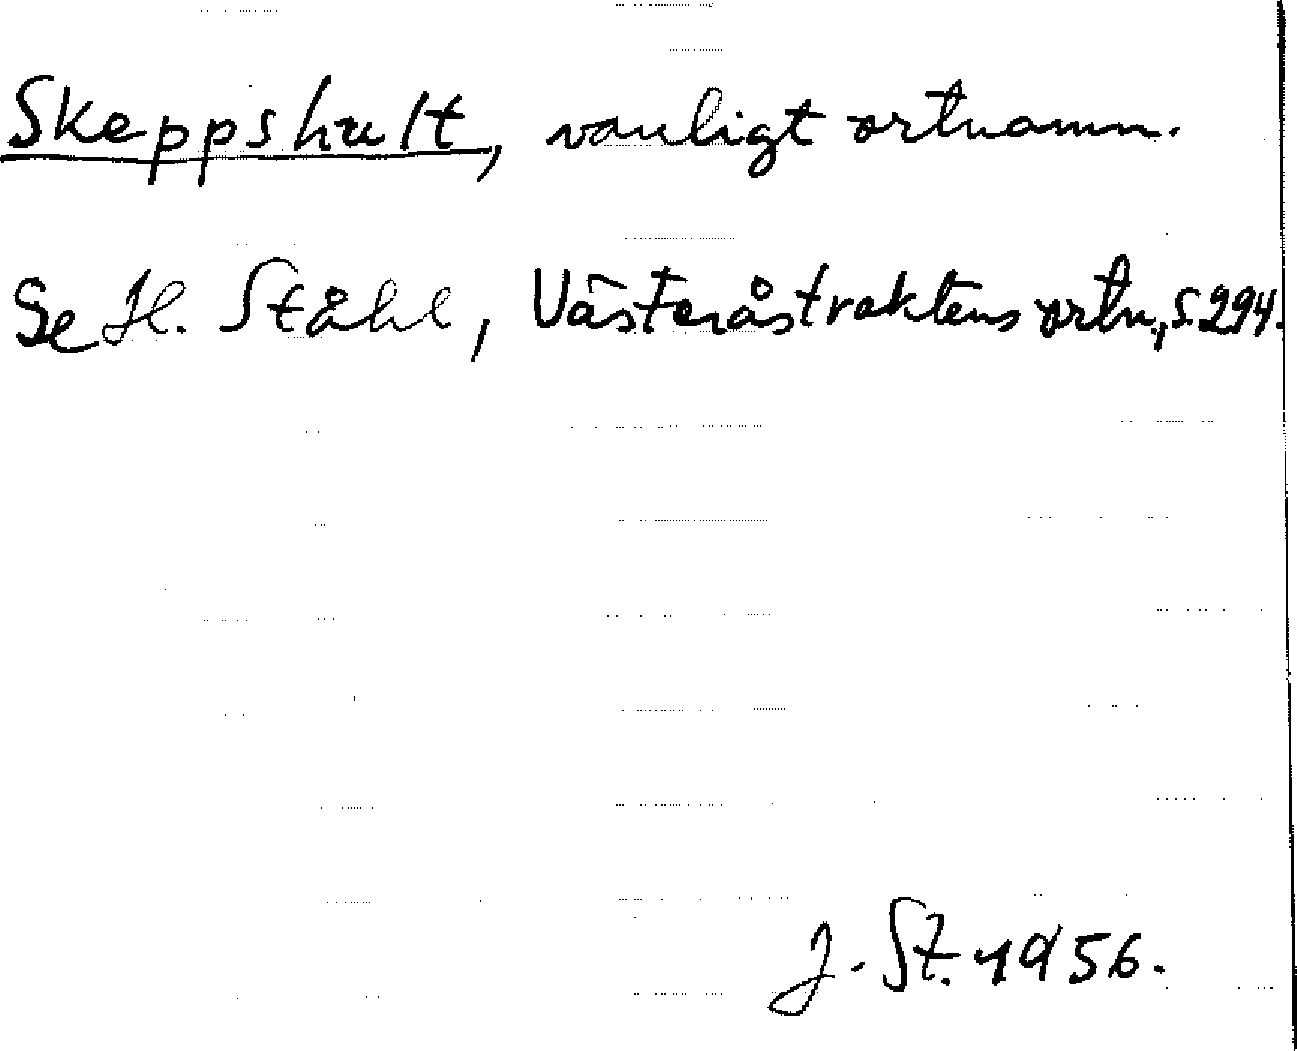 Skeppshult, vanligt ortnamn.
Se H. Ståhl, Västeråstraktens ortn., s. 294.
J. St. 1956.